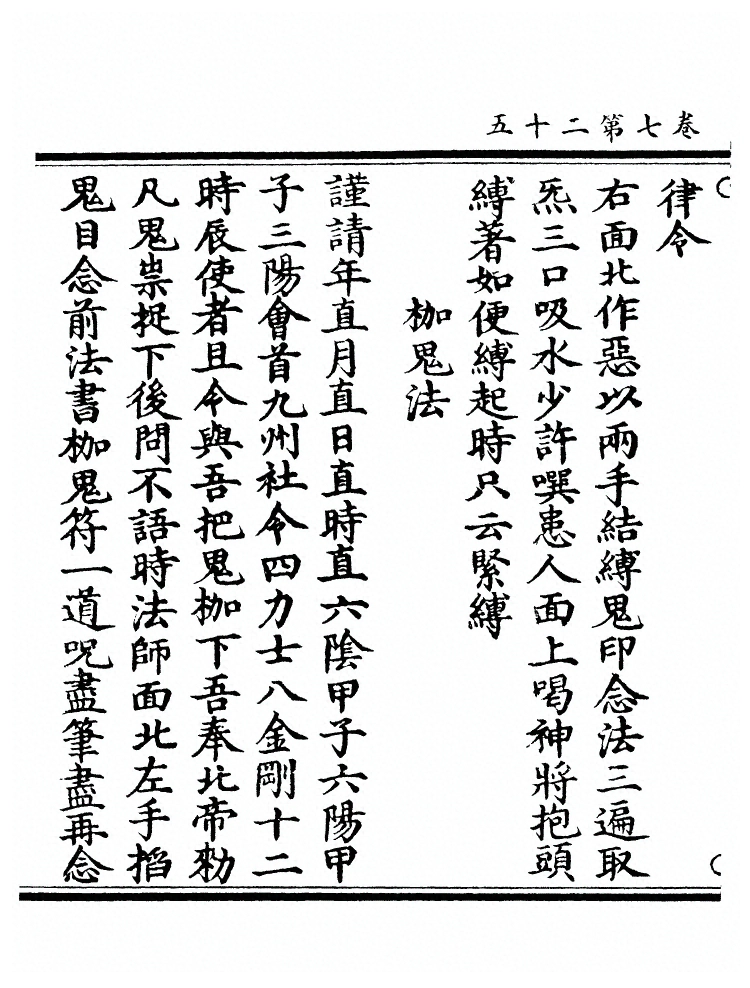 卷七第二十五
律令
右面北作惡以兩手結縛鬼印念法三遍取
炁三口吸水少許噀患人面上喝神將抱頭
縛著如便縛起時只云緊縛
枷鬼法
謹請年直月直日直時直六陰甲子六陽甲
子三陽會首九州社令四力士八金剛十二
時辰使者且令與吾把鬼枷下吾奉北帝勑
凡鬼祟捉下後問不語時法師面北左手搯
鬼目念前法書枷鬼符一道呪盡筆盡再念